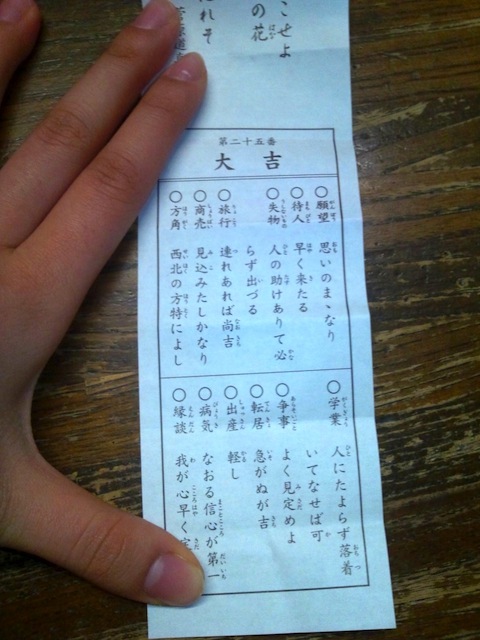 こせよ
の花
れそ
第二十五番
大吉
○願望 思いのまゝなり
○待人 早く来たる
○失物 人の助けありて必
らず出づる
○旅行 連れあれば尚吉
○商売 見込みたしかなり
○方角 西北の方特によし
○学業 人にたよらず落着
いてなせば可
○争事 よく見定めよ
○転居 急がぬが吉
○出産 軽し
○病気 なおる信心が第一
○縁談 我が心早く定